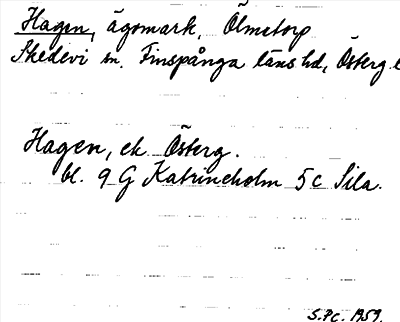 Hagen, ägomark, Ölmstorp
Skedevi sn. Finspånga läns hd, Österg.
Hagen, ek Österg.
bl. 9 G Katrineholm 5 c Sila.
S.Pc. 1959.